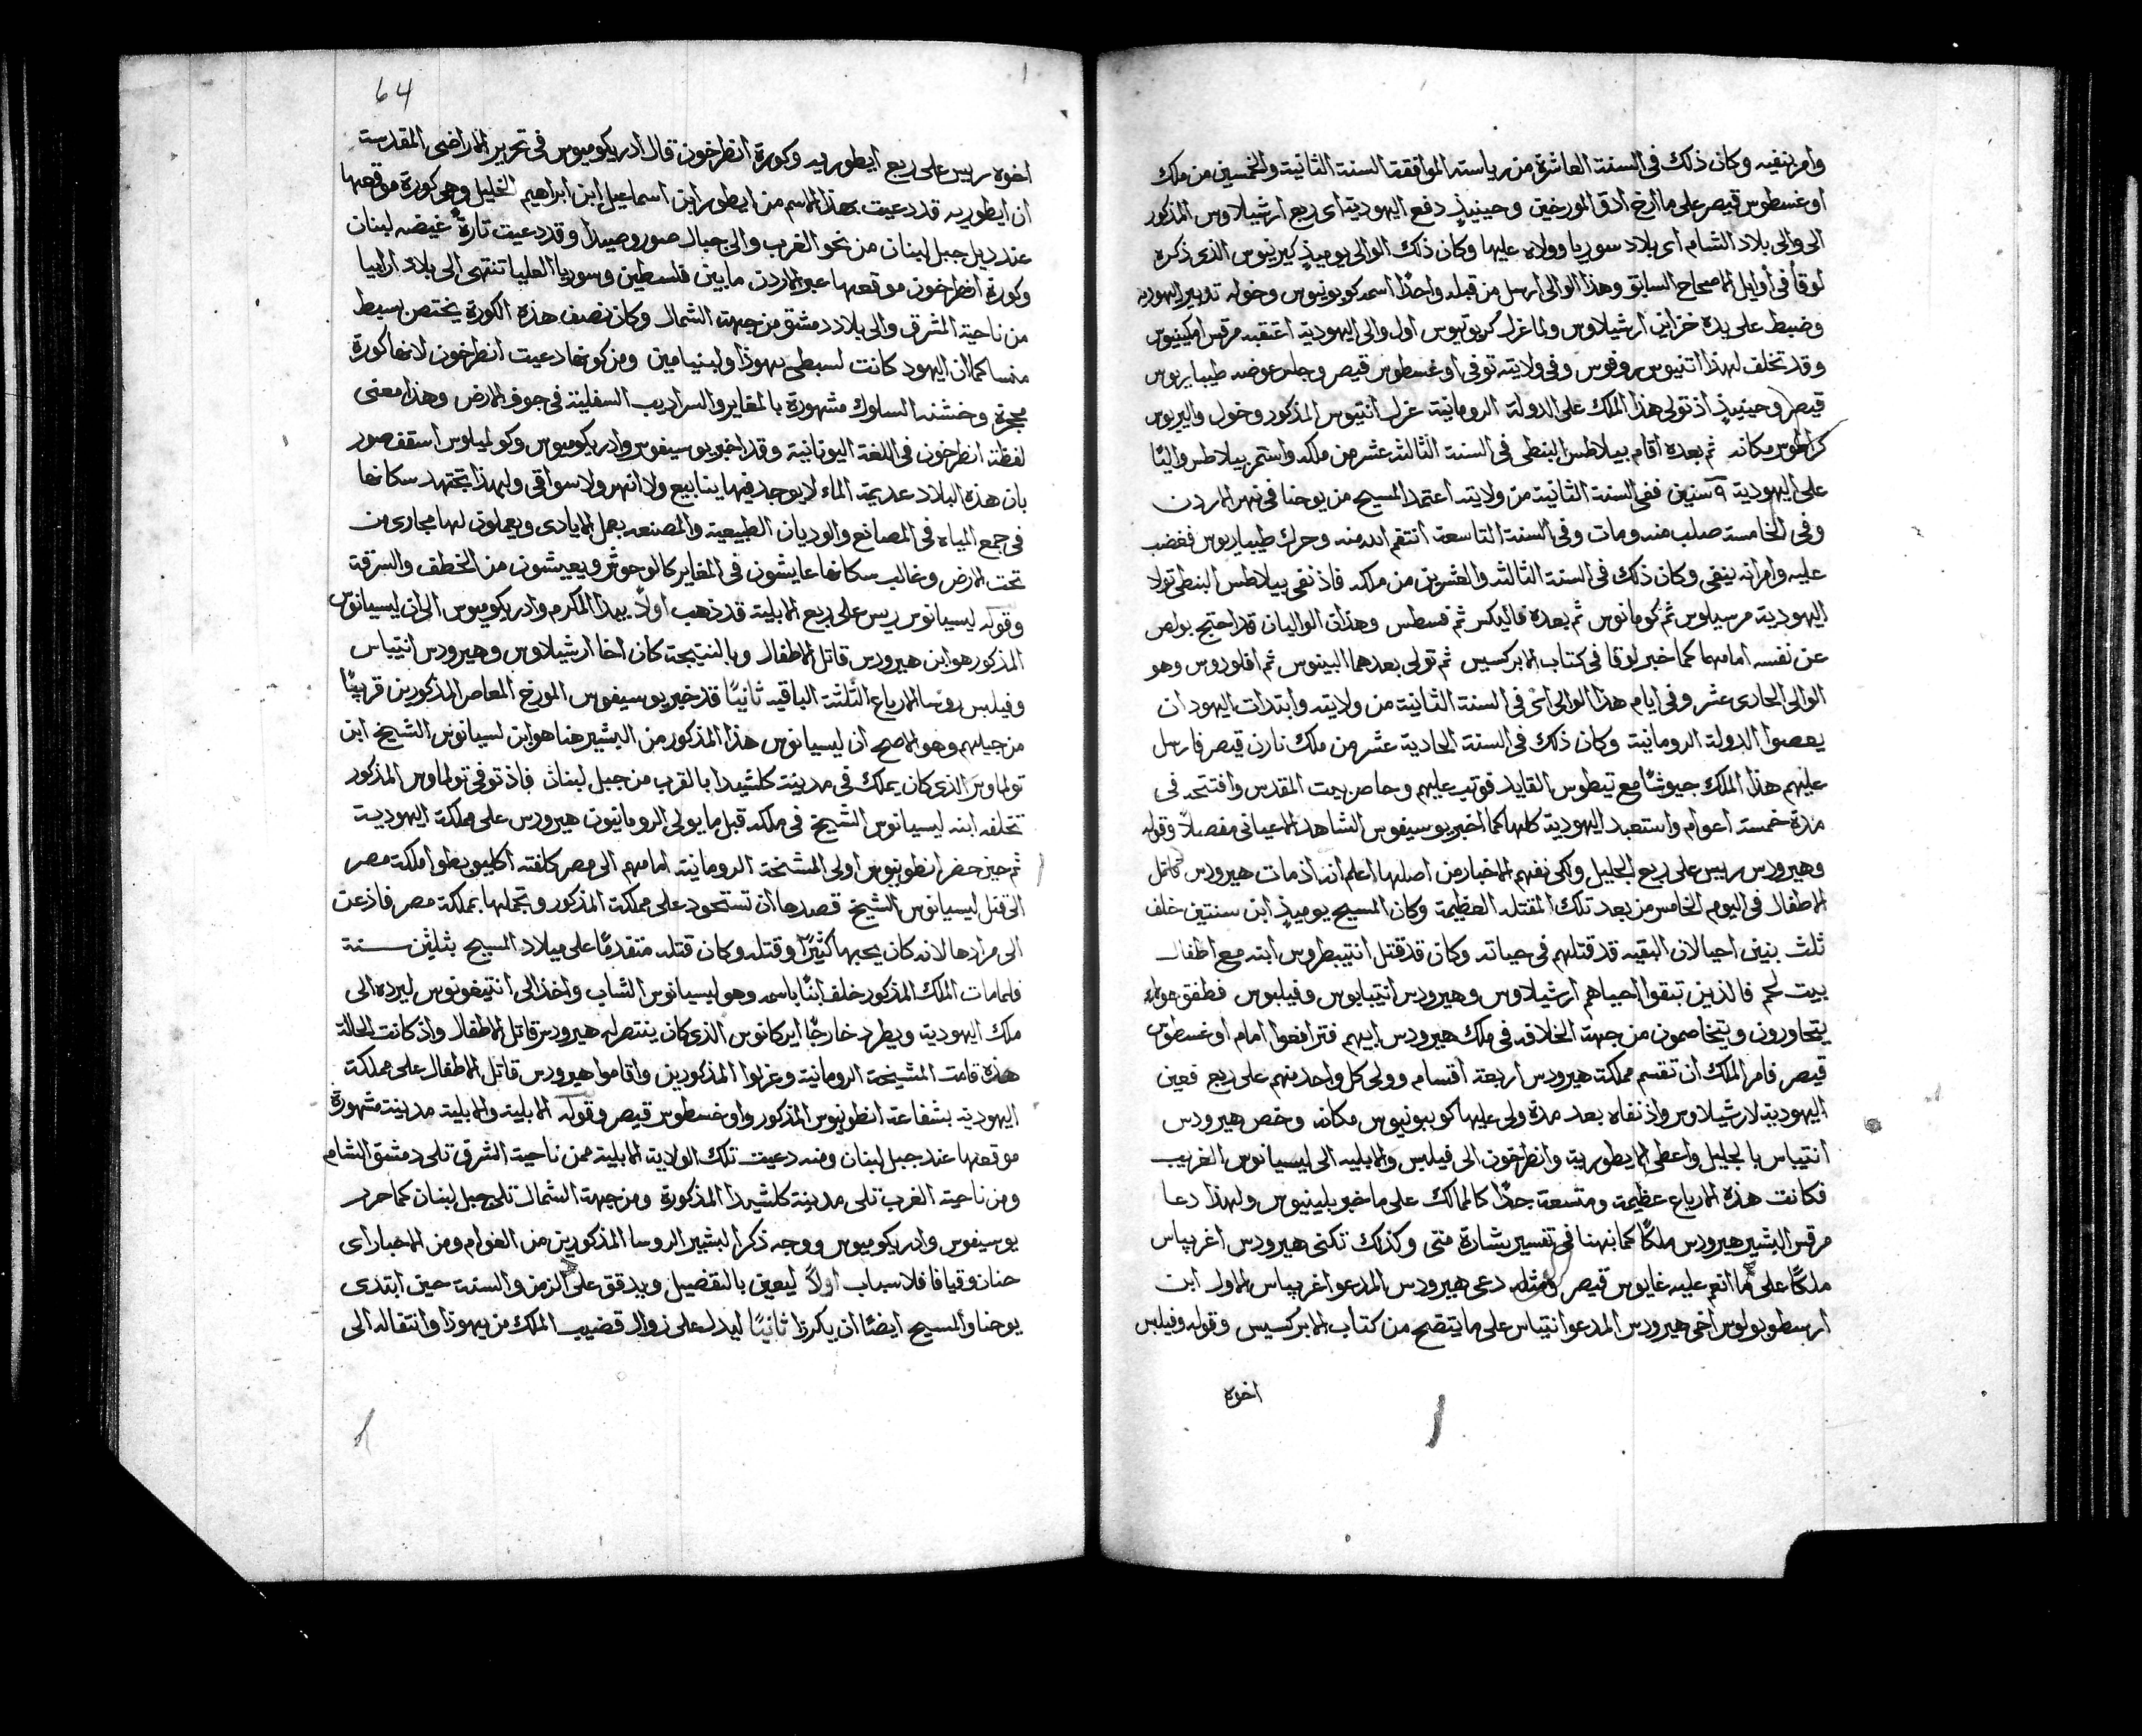 وامر بنفيه وكان ذلك في السنة العاشرة من رياسته الموافقة السنة الثانية والخمسين من ملك
اوغسطوس قيصر على ما ارخ ادق المورخين وحينيذٍ دفع اليهودية اى ربع ارشيلاوس المذكور
الى والى بلاد الشام اى بلاد سوريا وولاه عليها وكان ذلك الوالى يوميذٍ كيرنيوس الذى ذكره
لوقا في أوايل الاصحاح السابق وهذا الوالى ارسل من قبله واحدًا اسمه كوبونيوس وخوله تدبير اليهودية
وضبط على يده خزاين ارشيلاوس ولما عزل كوبونيوس اول والى اليهودية اعتقبه مرقس امكينيوس
وقد تخلف لهذا انيوس روفوس وفى ولايته توفى اوغسطوس قيصر وجلس عوضه طيباريوس
قيصر وحينيذٍ اذ تولى هذا الملك على الدولة الرومانية عزل انتيوس المذكور وخول واليريوس
كراطوس مكانه ثم بعده اقام بيلاطس البنطى في السنة الثالثة عشر من ملكه واستمر بيلاطس واليًا
على اليهودية ٩ سنين ففى السنة الثانية من ولايته اعتمد المسيح من يوحنا في نهر الاردن
وفى الخامسة صلب منه ومات وفى السنة التاسعة انتقم الله منه وحرك طيباريوس فغضب
عليه وامر انه ينفى وكان ذلك في السنة الثالثة والعشرين من ملكه فاذ نفى بيلاطس البنطى تولا
اليهودية مرسيلوس ثم كومانوس ثم بعده فاليكس ثم فسطس وهذان الواليان قد احتج بولص
عن نفسه امامهما كما خبر لوقا في كتاب الابركسيس ثم تولى بعدهما البينوس ثم افلوروس وهو
الوالى الحادى عشر وفى ايام هذا الوالى اى في السنة الثانية من ولايته وابتدات اليهود ان
يعصوا الدولة الرومانية وكان ذلك في السنة الحادية عشر من ملك نارن قيصر فارسل
عليهم هذا الملك جيوشًا مع تيطوس القايد فوثب عليهم وحاصر بيت المقدس وافتتحه في
مدة خمسة اعوام واستعبد اليهودية كلها كما اخبر يوسيفوس الشاهد الاعيانى مفصلاً وقوله
وهيرودس ريس على ربع الجليل ولكى نفهم الاخبار من اصلها اعلم انه اذ مات هيرودس قاتل
الاطفال في اليوم الخامس من بعد تلك المقتله العظيمة وكان المسيح يوميذٍ ابن سنتين خلف
ثلث بنين احيا لان البقيه قد قتلهم في حياته وكان قد قتل انتيبطروس ابنه مع اطفال
بيت لحم فالذين تبقوا احياهم ارشيلاوس وهيرودس انتيباوس وفيلبوس فطفق هولاء
يتحاورون ويتخاصمون من جهة الخلافه في ملك هيرودس ابيهم فترافعوا امام اوغسطوس
قيصر فامر الملك ان تقسم مملكة هيرودس اربعة اقسام وولى كل واحد منهم على ربع فعين
اليهودية لارشيلاوس واذ نفاه بعد مدة ولى عليها كوبونيوس مكانه وخص هيرودس
انتيباس بالجليل واعطى الايطورية وانطرخون الى فيلبس والابليه الى ليسيانوس الغريب
فكانت هذه الارباع عظيمة ومتسعة جدًا كالممالك على ما خبر بلينيوس ولهذا دعا
مرقس البشير هيرودس ملكًا كما نبهنا في تفسير بشارة متى وكذلك تكنى هيرودس اغريپاس
ملكًا على ما انعم عليه غايوس قيصر ومثله دعى هيرودس المدعو اغريپاس الاول ابن
ارسطوبولوس اخى هيرودس المدعو انتيباس على ما يتضح من كتاب الابركسيس وقوله وفيلبس
اخوه
64
اخوه ريس على ربع ايطوريه وكورة انطرخون قال ادريكوميوس في تحرير الاراضى المقدسة
ان ايطوريه قد دعيت بهذا الاسم من ايطور ابن اسماعيل ابن ابراهيم الخليل وهى كورة موقعها
عند ديل جبل لبنان من نحو الغرب والى جبال صور وصيدا وقد دعيت تارةً غيضه لبنان
وكورة انطرخون موقعها عبر الاردن ما بين فلسطين وسوريا العليا تنتهى الى بلاد ارابيا
من ناحية المشرق والى بلاد دمشق من جهة الشمال وكان نصف هذه الكورة يختص بسبط
منسا كما ان اليهود كانت لسبطى يهوذا ولبنيامين ومن كونها دعيت انطرخون لانها كورة
محجرة وخشنه السلوك مشهورة بالمغاير والسراديب السفلية في جوف الارض وهذا معنى
لفظة انطرخون في اللغة اليونانية وقد اخبر يوسيفوس وادريكوميوس وكوليلوس اسقف صور
بان هذه البلاد عديمة الماء لا يوجد فيها ينابيع ولا انهر ولا سواقى ولهذا يجتهد سكانها
في جمع المياه في المصانع والوديان الطبيعية والمصنعه بعمل الايادى ويعملون لها مجارى من
تحت الارض وغالب سكانها عايشون في المغاير كالوحوش ويعيشون من الخطف والسرقة
وقوله ليسيانوس ريس على ربع الابلية قد ذهب اولاً بيدا المكرم وادريكوميوس الى ان ليسيانوس
المذكور هو ابن هيرودس قاتل الاطفال وبالنتيجة كان اخا ارشيلاوس وهيرودس انتيباس
وفيلبس روسا الارباع الثلثة الباقيه ثانيًا قد خبر يوسيفوس المورخ المعاصر المذكورين قريبًا
من جيلهم وهو الاصح ان ليسيانوس هذا المذكور من البشير هنا هو ابن لسيانوس الشيخ ابن
تولماوس الذى كان يملك في مدينة كلشيدا بالقرب من جبل لبنان فاذ توفى تولماوس المذكور
تخلفه ابنه ليسيانوس الشيخ في ملكه قبل ما يولى الرومانيون هيرودس على مملكة اليهودية
ثم حين حضر انطونيوس اولى المشيخة الرومانية امامهم الى مصر كلفته اكليوبطرا ملكة مصر
الى قتل ليسيانوس الشيخ قصدها ان تستحود على مملكة المذكور وتجملها بمملكة مصر فاذعن
الى مرادها لانه كان يحبها كثيرًا وقتله وكان قتله متقدمًا على ميلاد المسيح بثلثين سنة
فلما مات الملك المذكور خلف ابنًا باسمه وهو ليسيانوس الشاب واخذ الى انتيغونوس ليرده الى
ملك اليهودية ويطرد خارجًا ايركانوس الذى كان ينتصر له هيرودس قاتل الاطفال واذ كانت الحالة
هذه قامت المشيخة الرومانية وعزلوا المذكورين واقاموا هيرودس قاتل الاطفال على مملكة
اليهودية بشفاعة انطونيوس المذكور واوغسطوس قيصر وقوله الابلية والابلية مدينة مشهورة
موقعها عند جبل لبنان ومنه دعيت تلك الولاية الابلية فمن ناحية الشرق تلى دمشق الشام
ومن ناحية الغرب تلى مدينة كلشيدا المذكورة ومن جهة الشمال تلى جبل لبنان كما حرر
يوسيفوس وادريكوميوس ووجه ذكر البشير الروسا المذكورين من العوام ومن الاحبار اى
حنان وقيافا فلاسباب اولاً ليعين بالتفصيل ويدقق على الزمن والسنة حين ابتدى
يوحنا والمسيح ايضًا ان يكرزا ثانيًا ليدل على زوال قضيب الملك من يهوذا وانتقاله الى